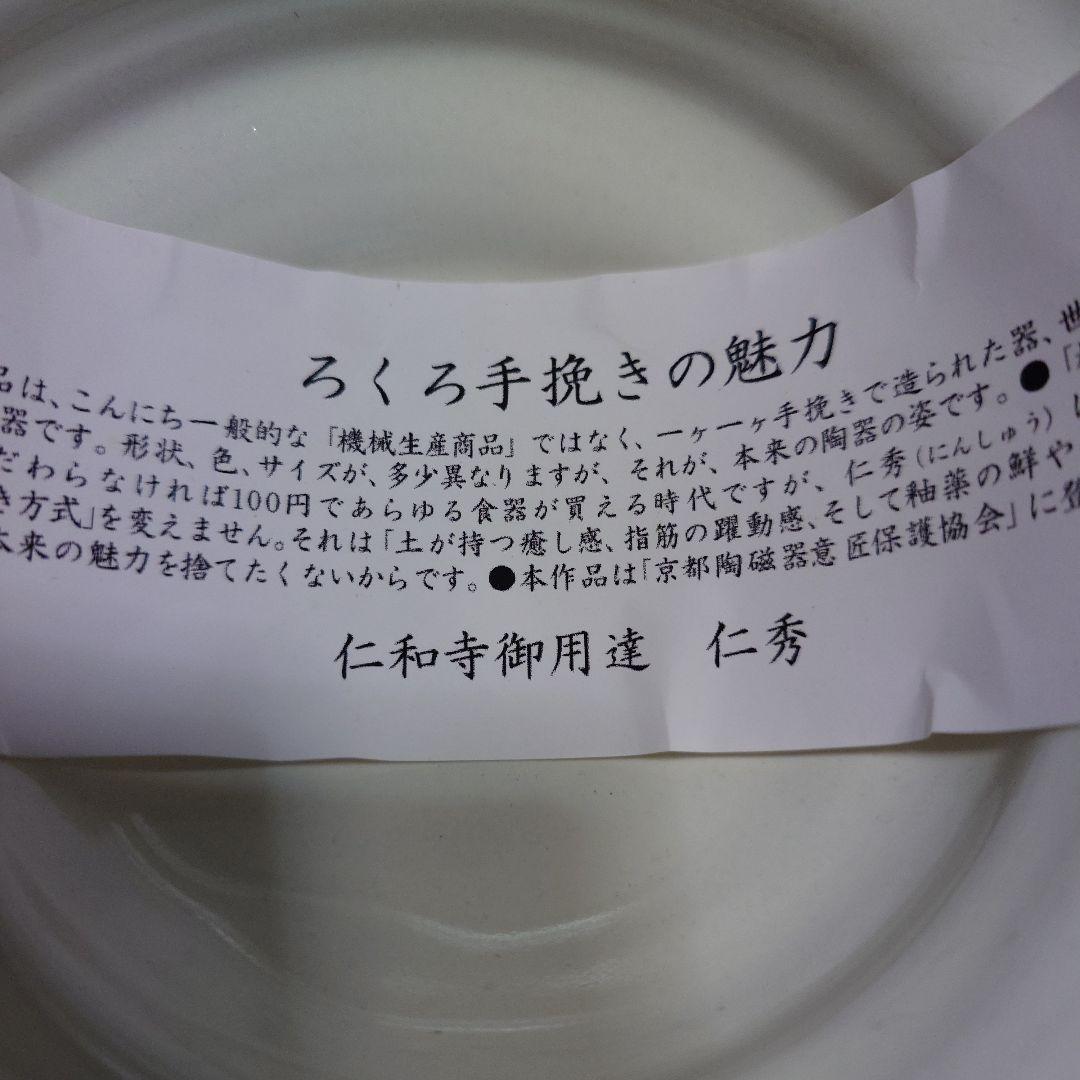 ろくろ手挽きの魅力
品は、こんにち一般的な「機械生産商品」ではなく、一ヶ一ヶ手挽きで造られた器、世
器です。形状、色、サイズが、多少異なりますが、それが、本来の陶器の姿です。●「
だわらなければ100円であらゆる食器が買える時代ですが、仁秀(にんしゅう)は
き方式」を変えません。それは「土が持つ癒し感、指筋の躍動感、そして釉薬の鮮や
本来の魅力を捨てたくないからです。●本作品は「京都陶磁器意匠保護協会」に登
仁和寺御用達 仁秀